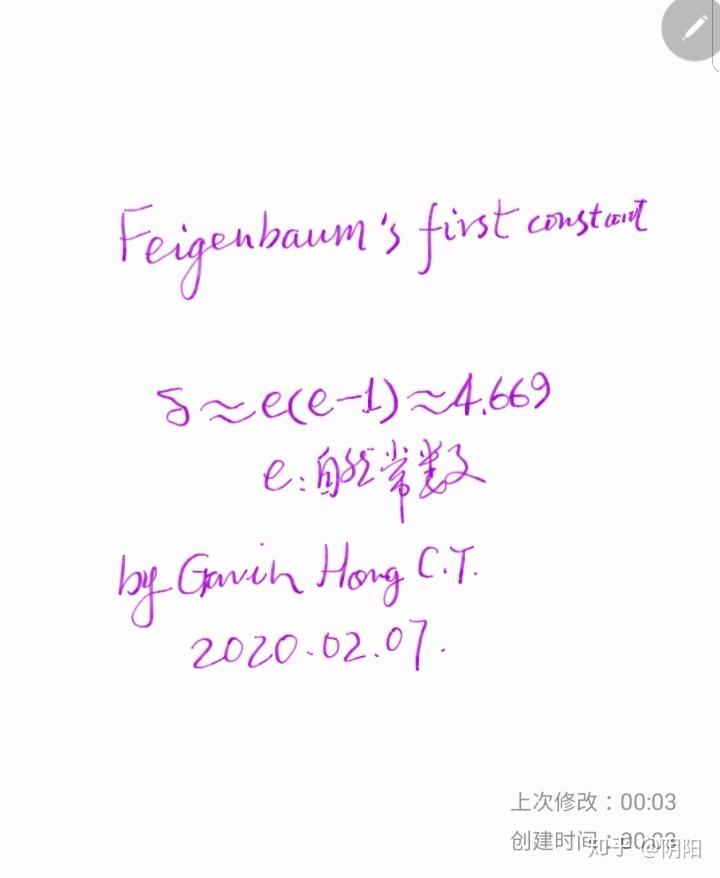 Feigenbaum's first constant
δ≈e(e-1)≈4.669
e:自然常数
by Gavin Hong C.T.
2020.02.07.
上次修改：00:03
创建时间：00:03
知乎 @阴阳